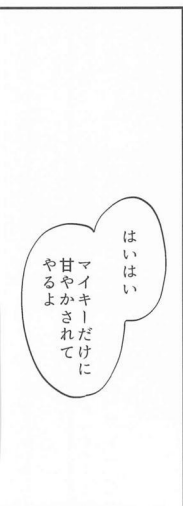 はいはい
マイキーだけに
甘やかされて
やるよ